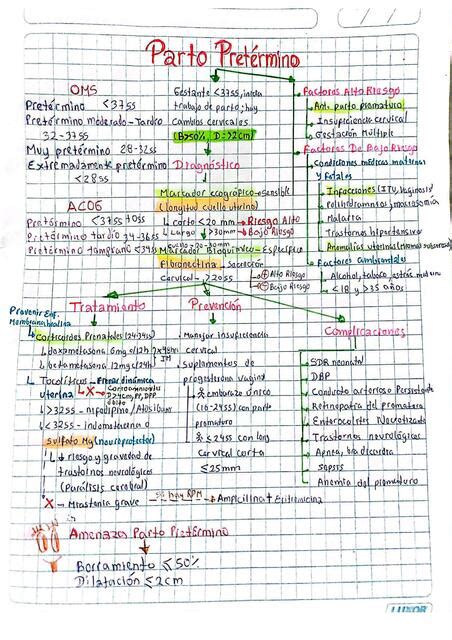 Parto Pretérmino
OMS
Pretérmino <37ss
Pretérmino moderado-Tardío
32-37ss
Muy pretérmino 28-32ss
Extremadamente pretérmino
<28ss
ACOG
Pretérmino <37ss
Pretérmino tardío 34-36ss
Pretérmino temprano <34ss
Gestante <37ss, inicia
trabajo de parto; hay
Cambios cervicales
(B>50%, D=>2cm)
Diagnóstico
Marcador ecográfico → sensible
(longitud cuello uterino)
↳ corto <20 mm → Riesgo Alto
↳ Largo >30mm → Bajo Riesgo
cuello → 20-30mm
Marcador Bioquímico → Específico
Fibronectina → Secreción
cervical → >20ss
⊕ Alto Riesgo
⊖ Bajo Riesgo
Factores Alto Riesgo
Ant. parto prematuro
Insuficiencia cervical
Gestación Múltiple
Factores De Bajo Riesgo
Condiciones médicas maternas
y fetales
Infecciones (ITU, Vaginosis)
Polihidramnios, macrosomía
Malaria
Trastornos hipertensivos
Anomalías uterinas
Factores ambientales
Alcohol, tabaco, estrés materno
<18 y >35 años
Tratamiento
Prevenir Enf.
Membrana hialina
Corticoides Prenatales (24-34ss)
↳ dexametasona 6mg c/12h x48hrs
↳ betametasona 12mg c/24h IM
↳ Tocolíticos - Frenar dinámica
uterina
↳ X → Corioamnionitis
D>4cm, PF, DPP
óbito
↳ >32ss - nifedipino/Atosiban
↳ <32ss - indometacina o
sulfato Mg (neuroprotector)
↓ riesgo y gravedad de
trastornos neurológicos
(Parálisis cerebral)
X - Miastenia grave
Si hay RPM → Ampicilina + Eritromicina
Prevención
Manejar insuficiencia
cervical
Suplementos de
progesterona vaginal
embarazo único
(16-24ss) con parto
prematuro
≤24ss con long
Cervical corta
≤25mm
Complicaciones
SDR neonatal
DBP
Conducto arterioso Persistente
Retinopatía del prematuro
Enterocolitis Necrotizante
Trastornos neurológicos
Apnea, bradicardia
sepsis
Anemia del prematuro
Amenaza Parto Pretérmino
Borramiento ≤50%
Dilatación ≤2cm
LUXOR